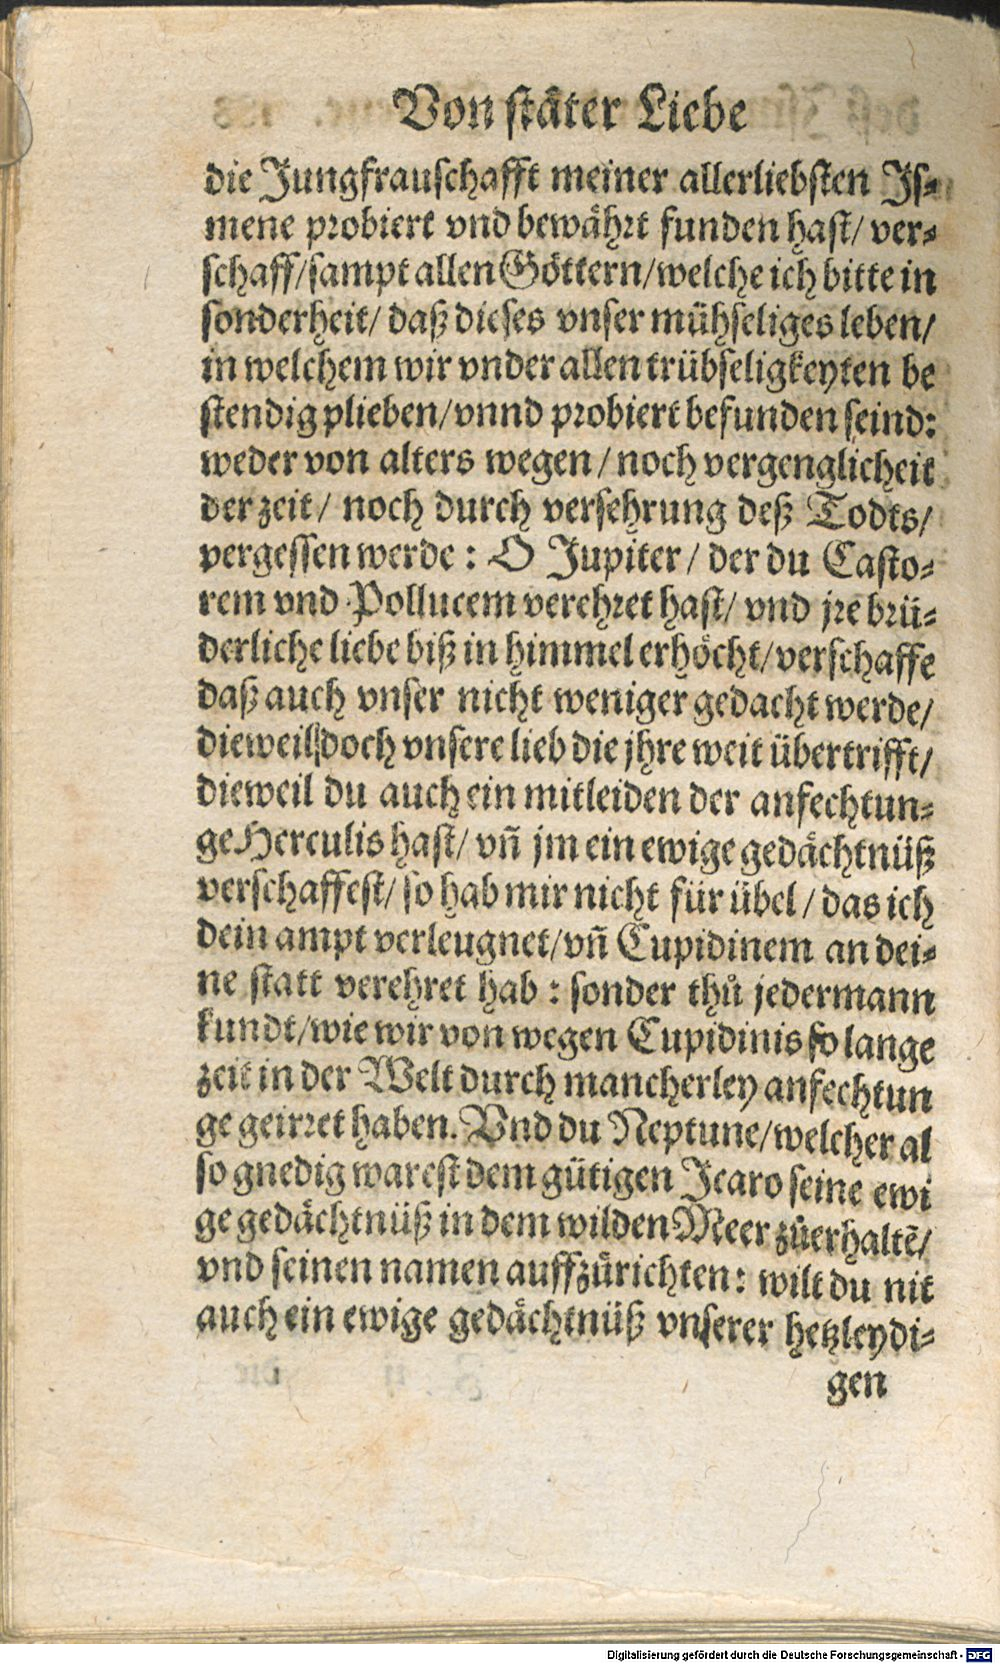 Von stäter Liebe
die Jungfrauschafft meiner allerliebsten Is-
mene probiert vnd bewährt funden hast/ ver-
schaff/sampt allen Göttern/welche ich bitte in
sonderheit/ daß dieses vnser mühseliges leben/
in welchem wir vnder allen trübseligkeyten be
stendig plieben/vnnd probiert befunden seind:
weder von alters wegen/noch vergenglicheit
der zeit/ noch durch versehrung deß Todts/
vergessen werde: O Jupiter/ der du Casto-
rem vnd Pollucem verehret hast/ vnd jre brü-
derliche liebe biß in himmel erhöcht/verschaffe
daß auch vnser nicht weniger gedacht werde/
dieweil doch vnsere lieb die jhre weit übertrifft/
dieweil du auch ein mitleiden der anfechtun-
ge Herculis hast/ vñ jm ein ewige gedächtnüß
verschaffest/ so hab mir nicht für übel/ das ich
dein ampt verleugnet/vñ Cupidinem an dei-
ne statt verehret hab: sonder thů jedermann
kundt/wie wir von wegen Cupidinis so lange
zeit in der Welt durch mancherley anfechtun
ge geirret haben. Vnd du Neptune/welcher al
so gnedig warest dem gütigen Icaro seine ewi
ge gedächtnüß in dem wilden Meer zůerhaltẽ/
vnd seinen namen auffzůrichten: wilt du nit
auch ein ewige gedächtnüß vnserer hetzleydi-
gen
Digitalisierung gefördert durch die Deutsche Forschungsgemeinschaft - DFG